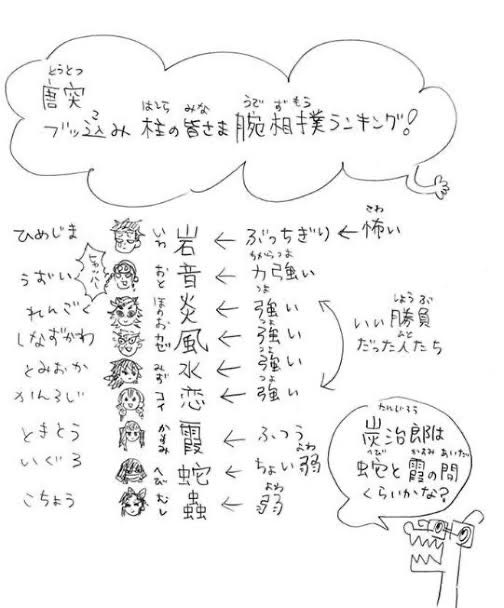 とうとつ
唐突
ブッ込み柱の皆さま腕相撲ランキング!
こ はしら みな うで ずもう
ひめじま いわ 岩 ← ぶっちぎり ← 怖い
さわ
うずい ヒャッハー おと 音 ← 力強い
ちからつよ
れんごく ほのお 炎 ← 強い
つよ
しなずかわ カゼ 風 ← 強い
つよ
とみおか みず 水 ← 強い
つよ
かんろじ コイ 恋 ← 強い
つよ
ときとう かすみ 霞 ← ふつう
いぐろ へび 蛇 ← ちょい弱
よわ
こちょう むし 蟲 ← 弱
よわ
しょうぶ
いい勝負
だった人たち
たんじろう
炭治郎は
へび かすみ あいだ
蛇と霞の間
くらいかな?